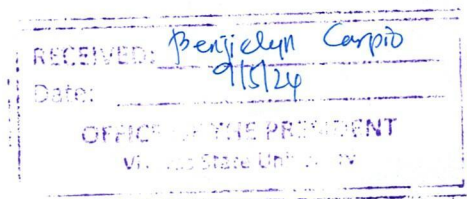 RECEIVED: Benjielyn Carpio
Date: 9/5/24
OFFICE OF THE PRESIDENT
State University